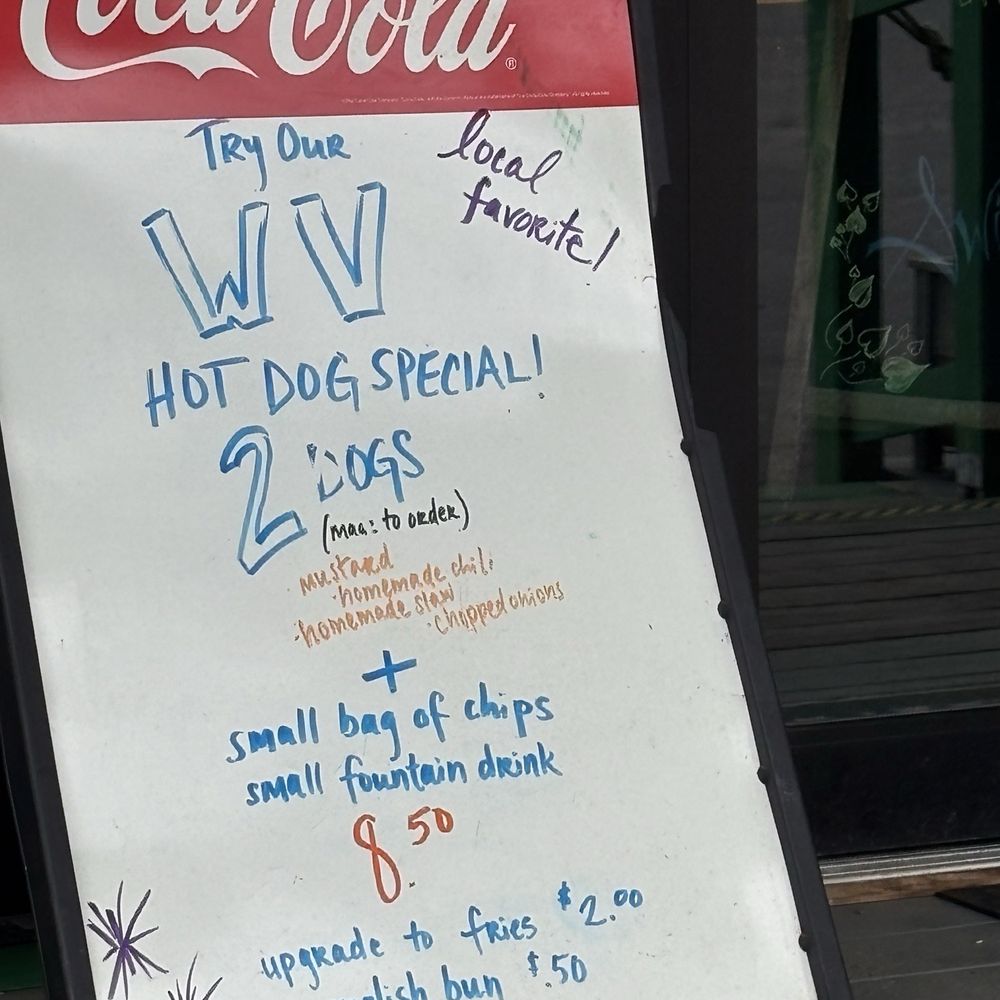 Coca-Cola®
TRY OUR
local
favorite!
WV
HOT DOG SPECIAL!
2 DOGS
to order)
mustard
·homemade chili
·homemade slaw
·chopped onions
+
small bag of chips
small fountain drink
8.50
upgrade to fries $2.00
bun $.50